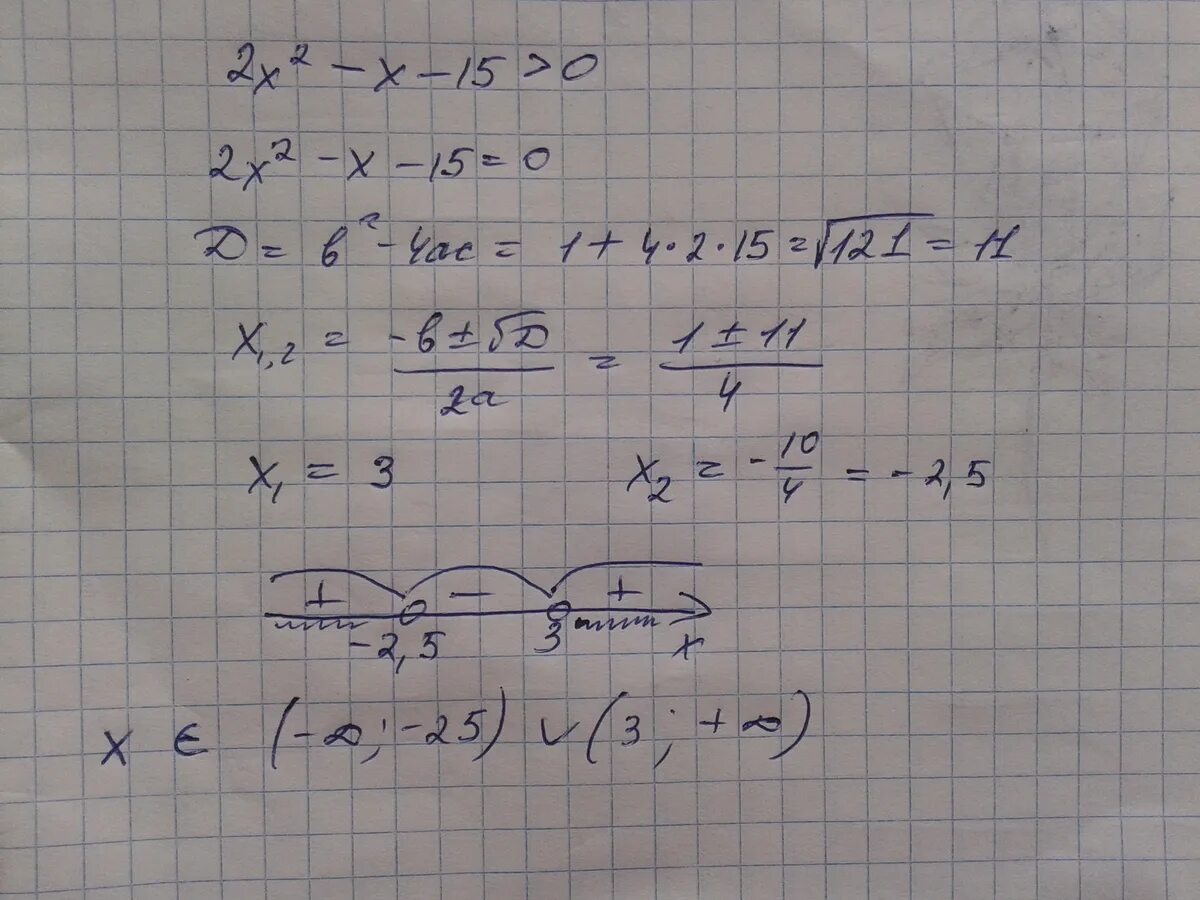 2x² - x - 15 > 0
2x² - x - 15 = 0
D = b² - 4ac = 1 + 4·2·15 = √121 = 11
x₁,₂ = (-b ± √D)/(2a) = (1 ± 11)/4
x₁ = 3 x₂ = -10/4 = -2,5
+ - +
-2,5 3 x
x ∈ (-∞; -25) ∪ (3; +∞)